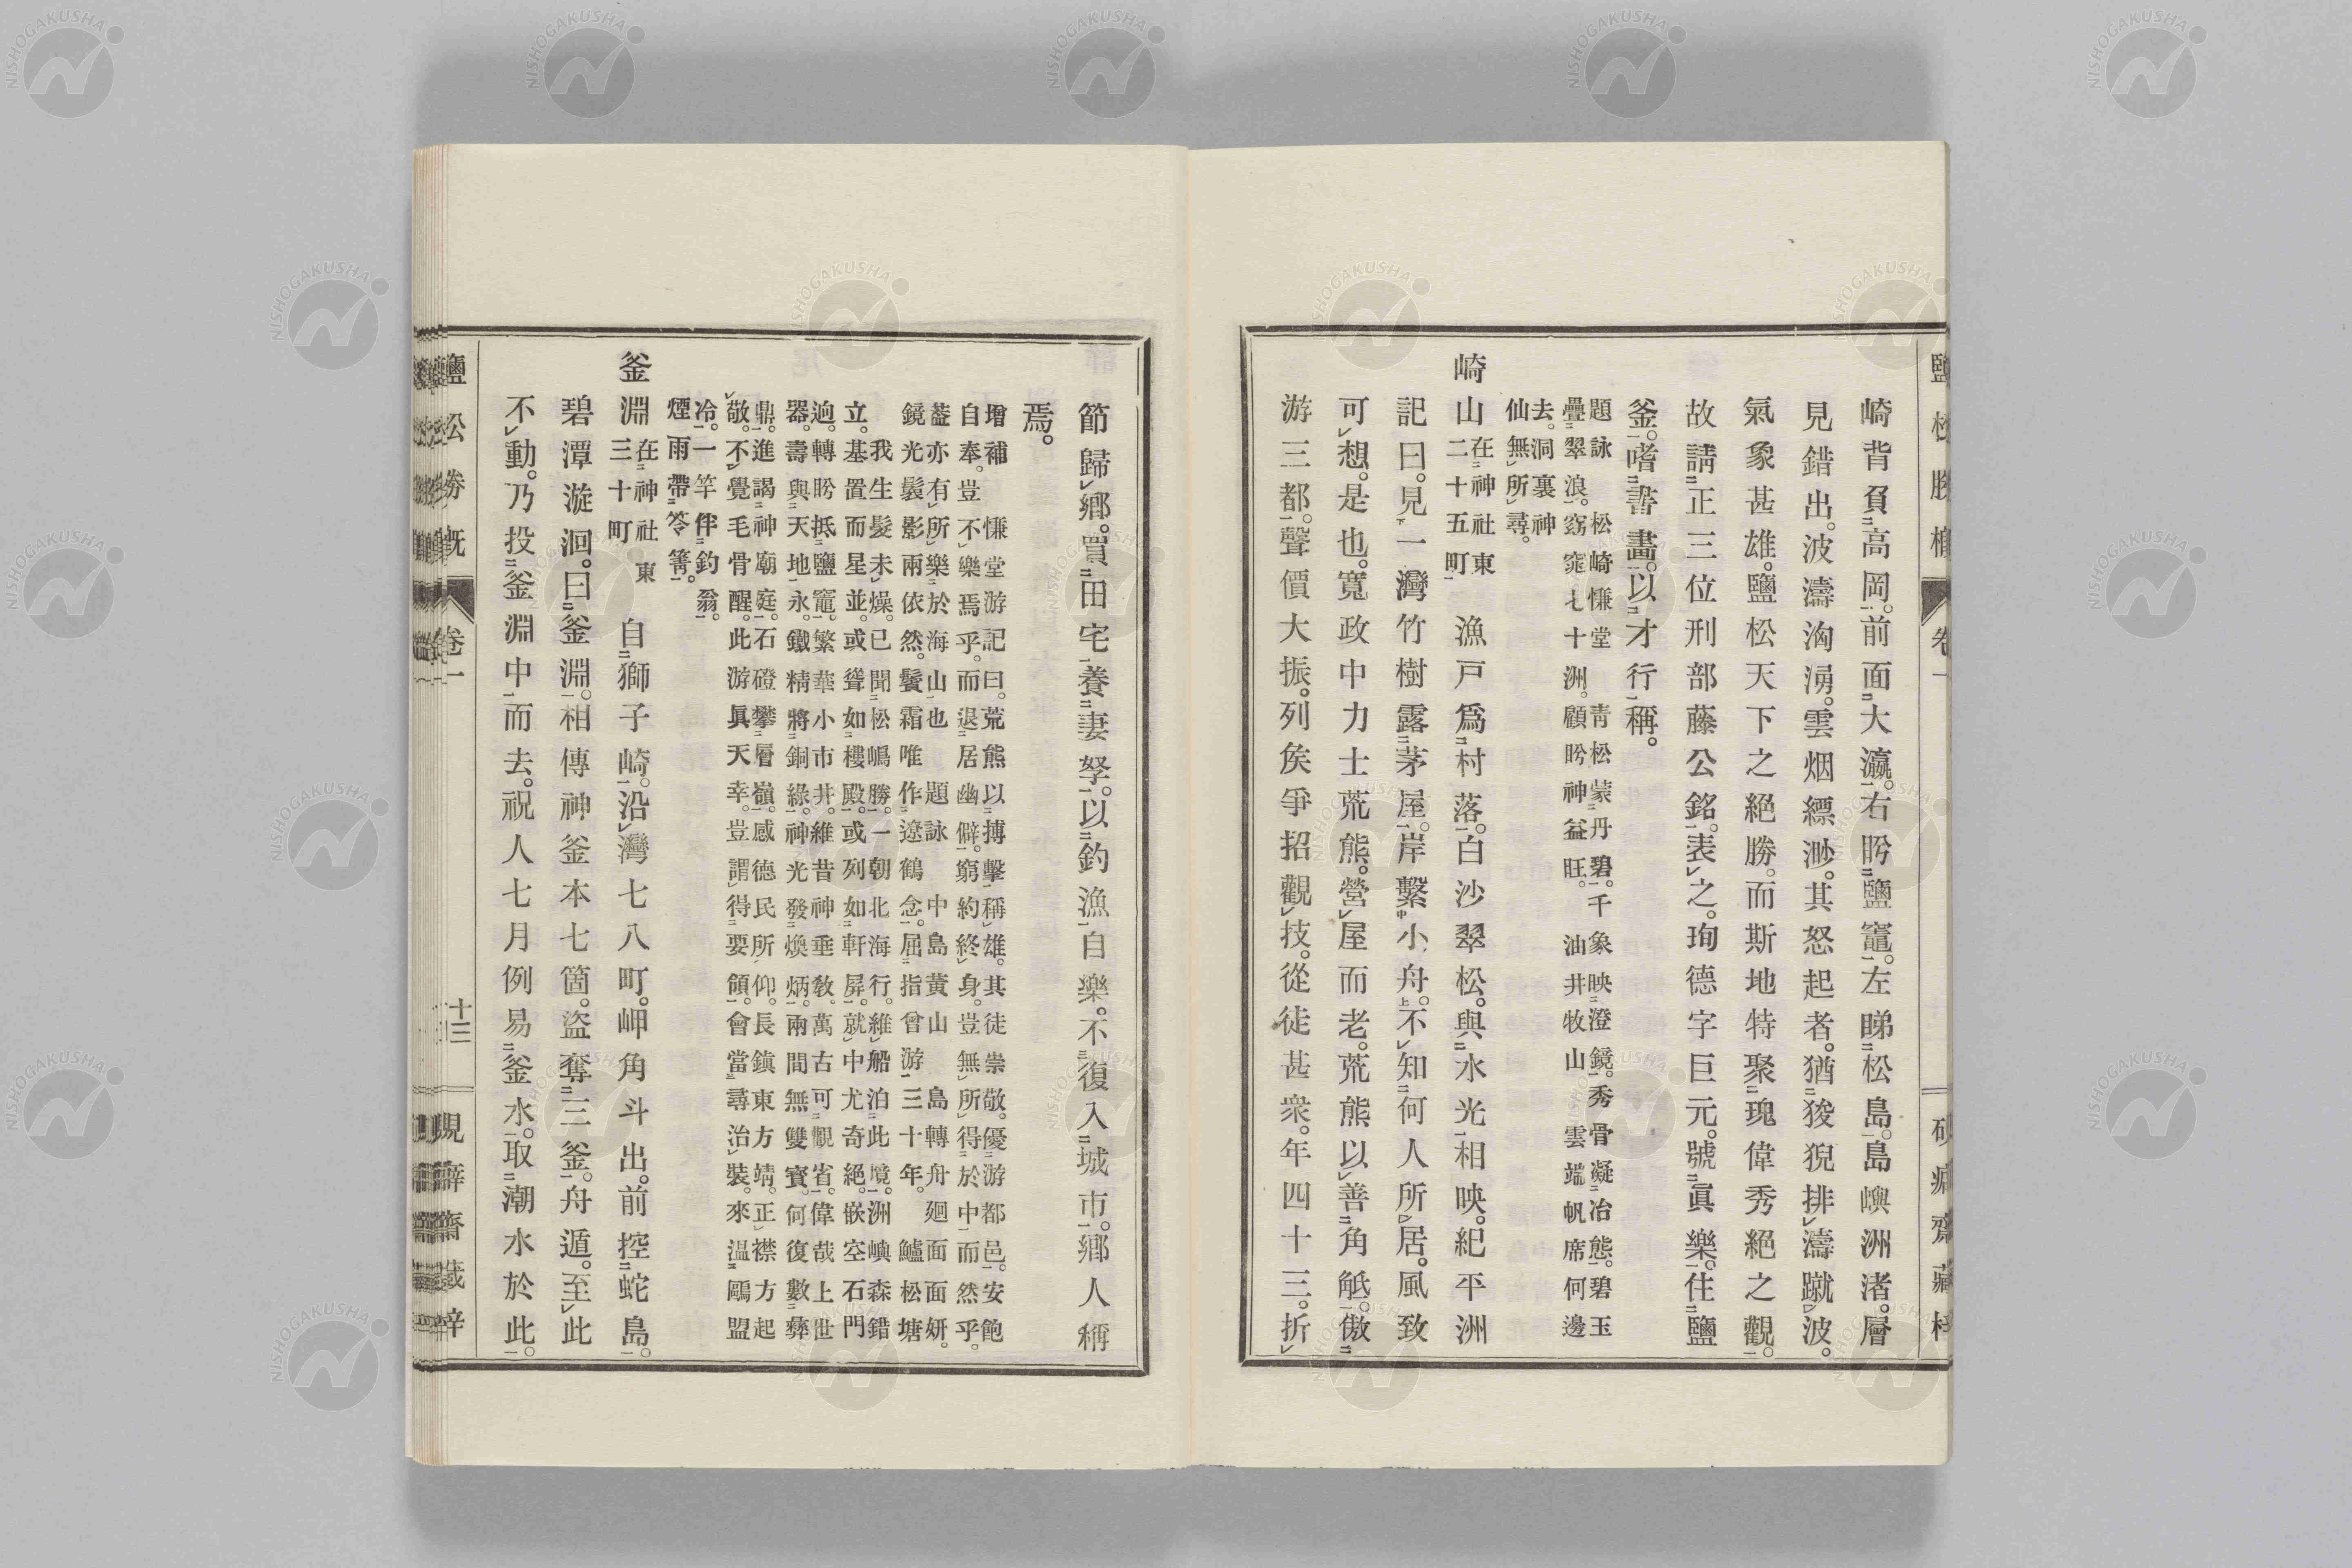 崎背負高岡。前面大瀛。右盻鹽竈。左睇松島。島嶼洲渚。層
見錯出。波濤洶湧。雲烟縹渺。其怒起者。猶狻猊排濤蹴波。
氣象甚雄。鹽松天下之絕勝。而斯地特聚瑰偉秀絕之觀。
故請正三位刑部藤公銘。表之。珣德字巨元。號眞樂。住鹽
釜。嗜書畫。以才行稱。
題詠 松崎慊堂 靑松蒙丹碧。千象映澄鏡。秀骨凝冶態。碧玉
疊翠浪。窈窕七十洲。顧盻神益旺。 油井牧山 雲端帆席何邊
去。洞裏神
仙無所尋。
崎山在神社東
二十五町 漁戸爲村落。白沙翠松。與水光相映。紀平洲
記曰。見一灣竹樹露茅屋。岸繫小舟。不知何人所居。風致
可想。是也。寬政中力士荒熊。營屋而老。荒熊以善角觝。傲
游三都。聲價大振。列矦爭招觀技。從徒甚衆。年四十三。折
節歸鄕。買田宅養妻孥。以釣漁自樂。不復入城市。鄕人稱
焉。
增補 慊堂游記曰。荒熊以搏擊稱雄。其徒崇敬。優游都邑。安飽
自奉。豈不樂焉乎。而退居幽僻。窮約終身。豈無所得於中而然乎。
葢亦有所樂於海山也 題詠 中島黃山 島轉舟廻面面妍。
鏡光鬟影兩依然。鬢霜唯作遼鶴念。屈指曾游三十年。 鱸松塘
我生髮未燥。已聞松嶋勝。一朝北海行。維船泊此境。洲嶼森錯
立。基置而星並。或聳如樓殿。或列如軒屛。就中尤奇絕。嵌空石門
逈。轉盻抵鹽竈。繁華小市井。維昔神垂敎。萬古可覩省。偉哉上世
器。壽與天地永。鐵精將銅綠。神光發煥炳。兩間無雙寶。何復數彝
鼎。進謁神廟庭。石磴攀層嶺。感德民所仰。長鎭東方靖。正襟方起
敬。不覺毛骨醒。此游眞天幸。豈謂得要領。會當尋治裝。來溫鷗盟
冷。一竿伴釣翁。
煙雨帶笭箐。
釜淵在神社東
三十町 自獅子崎。沿灣七八町。岬角斗出。前控蛇島。
碧潭漩洄。曰釜淵。相傳神釜本七箇。盜奪三釜。舟遁。至此
不動。乃投釜淵中而去。祝人七月例易釜水。取潮水於此。
卷一
十三